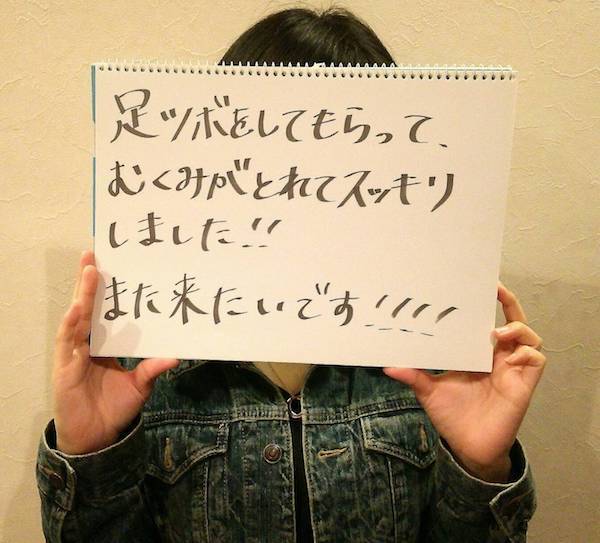 足ツボをしてもらって、
むくみがとれてスッキリ
しました!!
また来たいです!!!!